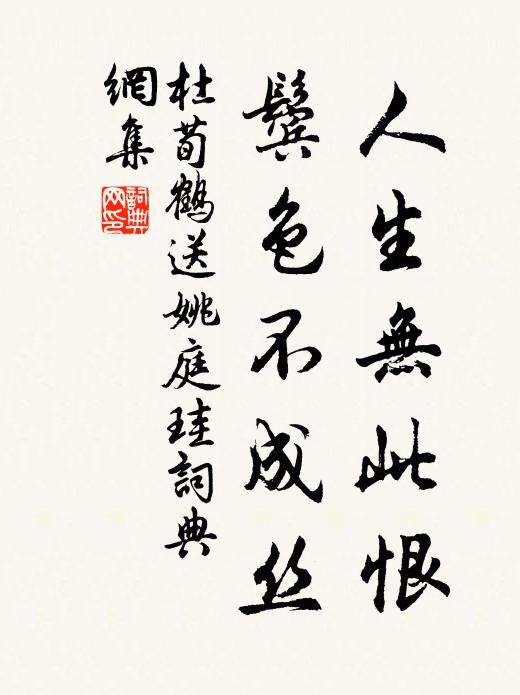 人生無此恨
鬢色不成丝
杜荀鶴送姚庭珪詞典
網集
詞典
网印